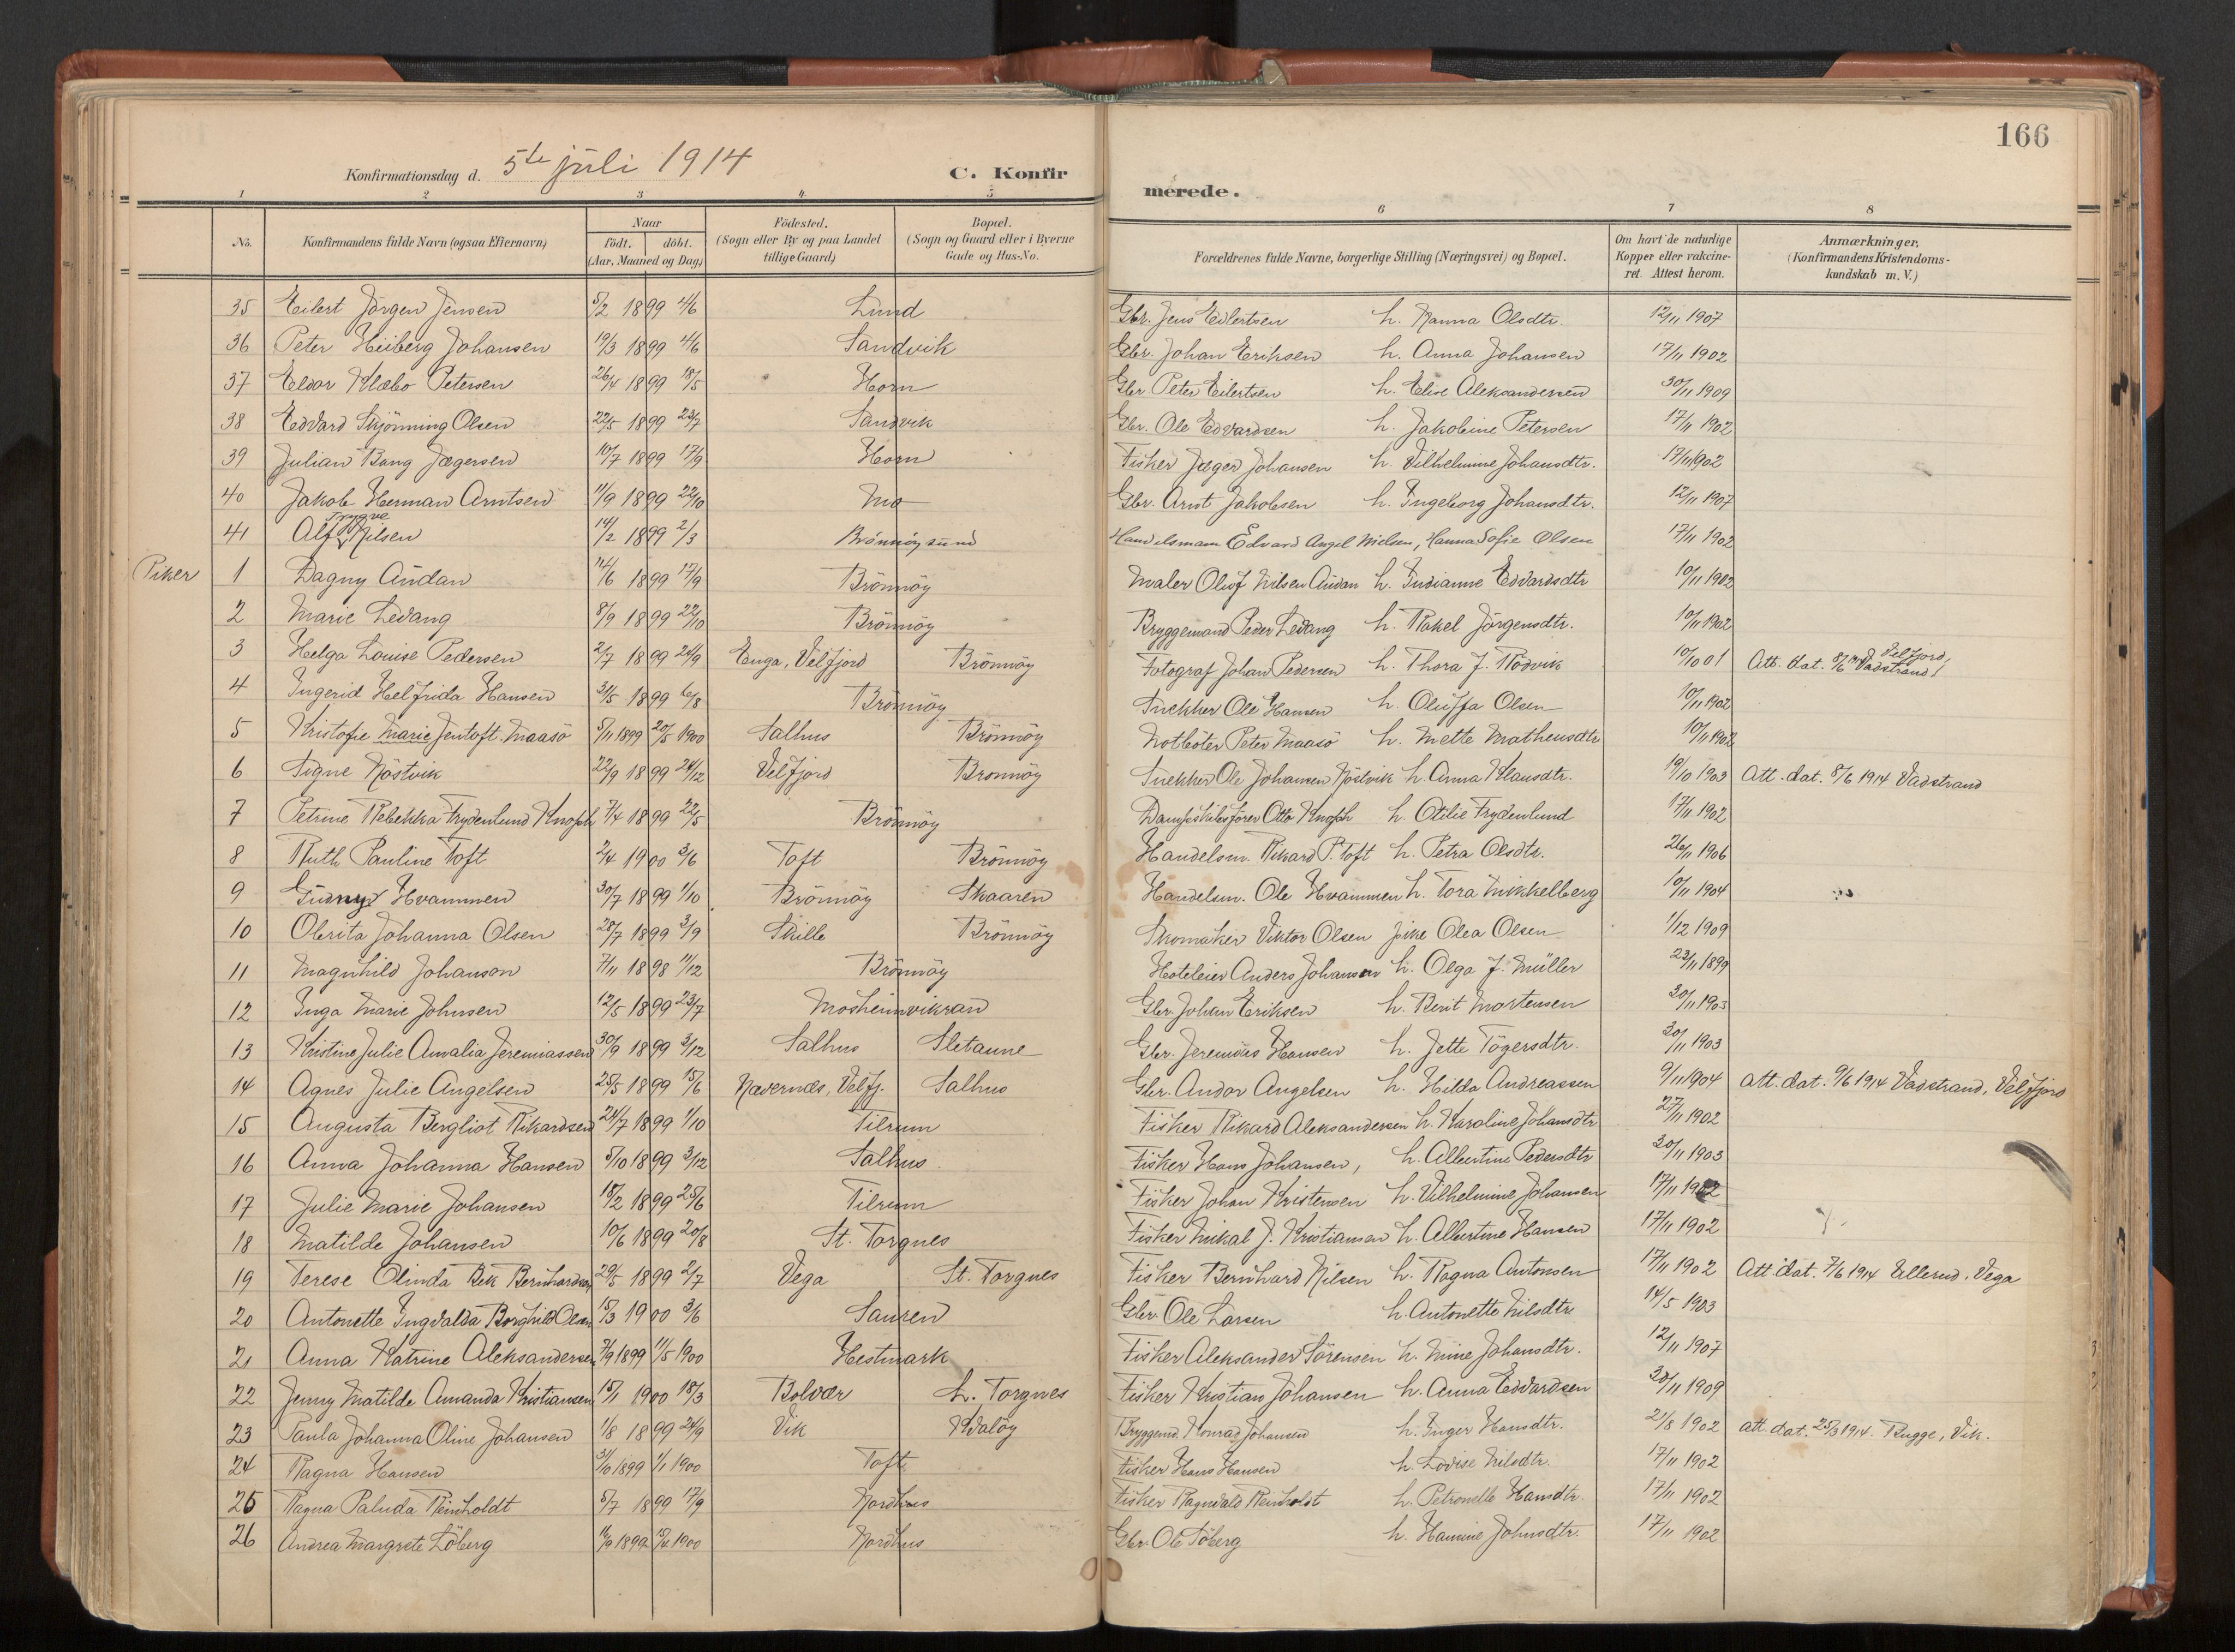 166
Konfirmationsdag d. 5te juli 1914
C. Konfirmerede.
1 2 3 4. 5. 6 7 8
No. Konfirmandens fulde Navn (ogsaa Efternavn) Naar födt. döbt. (Aar, Maaned og Dag) Födested. (Sogn eller By og paa Landet tillige Gaard) Bopæl. (Sogn og Gaard eller i Byerne Gade og Hus-No. Forældrenes fulde Navne, borgerlige Stilling (Næringsvei) og Bopæl. Om havt de naturlige Kopper eller vakcineret. Attest herom. Anmærkninger. (Konfirmandens Kristendomskundskab m. V.)
35 Eilert Jörgen Jensen 5/2 1899 4/6 Lund Gbr. Jens Eilertsen h. Nanna Olsdtr. 12/11 1907
36 Peter Heiberg Johansen 19/3 1899 4/6 Sandvik Gbr. Johan Eriksen h. Anna Johansen 17/11 1902
37 Eldor Klæbo Petersen 26/4 1899 18/5 Horn Gbr Peter Eilertsen h. Elise Aleksandersen 30/11 1909
38 Edvard Skjönning Olsen 22/5 1899 23/7 Sandvik Gbr. Ole Edvardsen h. Jakobine Petersen 17/11 1902
39 Julian Bang Jægersen 10/7 1899 17/9 Horn Fisker Jæger Johansen h. Vilhelmine Johansdtr. 17/11 1902
40 Jakob Herman Arntsen 11/9 1899 22/10 Mo Gbr. Arnt Jakobsen h. Ingeborg Johansdtr. 12/11 1907
41 Alf Trygve Nilsen 14/2 1899 2/3 Brönnöysund Handelsmann Edvard Angel Nielsen, Hanna Sofie Olsen 17/11 1902
Piker 1 Dagny Audan 14/6 1899 17/9 Brönnöy Maler Oluf Nilsen Audan h. Indianne Edvardsdtr 10/11 1902
2 Marie Ledang 8/9 1899 22/10 Brönnöy Bryggemand Peder Ledang h. Rakel Jörgensdtr. 10/11 1902
3 Helga Louise Pedersen 2/7 1899 24/9 Enga, Velfjord Brönnöy Fotograf Johan Pedersen h. Thora J. Rödvik 10/10 01 Att. dat. 8/6 14 Vadstrand, Velfjord,
4 Ingerid Helfrida Hansen 31/5 1899 6/8 Brönnöy Snekker Ole Hansen h. Oluffa Olsen 10/11 1902
5 Kristofie Marie Jentoft Maasö 5/11 1899 20/5 1900 Salhus Brönnöy Notböter Peter Maasö h. Mette Matheusdtr 10/11 1902
6 Signe Nöstvik 22/9 1899 24/12 Velfjord Brönnöy Snekker Ole Johansen Nöstvik h. Anna Klausdtr. 19/10 1903 Att. dat. 8/6 1914 Vadstrand
7 Petrine Rebekka Frydenlund Knoph 7/4 1899 22/5 Brönnöy Dampskibsförer Otto Knoph h. Otilie Frydenlund 17/11 1902
8 Ruth Pauline Toft 2/4 1900 3/6 Toft Brönnöy Handelsm. Rikard P. Toft h. Petra Olsdtr. 26/11 1906
9 Gudny Hvammen 30/7 1899 1/10 Brönnöy Skaaren Handelsm. Ole Hvammen h. Tora Mikkelberg 10/11 1904
10 Oberita Johanna Olsen 28/7 1899 3/9 Skille Brönnöy Skomaker Viktor Olsen pike Olea Olsen 1/12 1909
11 Magnhild Johanson 7/11 1898 11/12 Brönnöy Hoteleier Anders Johanson h. Olga J. Müller 23/11 1899
12 Inga Marie Johnsen 12/5 1899 23/7 Mosheimvikran Gbr. Johan Eriksen h. Berit Mortensen 30/11 1903
13 Kristine Julie Amalia Jeremiassen 30/9 1899 3/12 Salhus Sletaune Gbr. Jeremias Hansen h. Jette Tögersdtr. 30/11 1903
14 Agnes Julie Angelsen 25/5 1899 15/6 Nævernes, Velfj. Salhus Gbr. Andor Angelsen h. Hilda Andreassen 9/11 1904 Att. dat. 9/6 1914 Vadstrand, Velfjord
15 Augusta Bergliot Rikardsen 24/7 1899 1/10 Tilrum Fisker Rikard Aleksandersen h. Karoline Johansdtr 27/11 1902
16 Anna Johanna Hansen 5/10 1899 3/12 Salhus Fisker Hans Johansen, h. Albertine Pedersdtr 30/11 1903
17 Julie Marie Johansen 18/2 1899 25/6 Tilrum Fisker Johan Kristensen h. Vilhelmine Johansen 17/11 1902
18 Matilde Johansen 10/6 1899 20/8 St. Torgnes Fisker Mikal J. Kristiansen h. Albertine Hansen 17/11 1902
19 Terese Olinda Bek Bernhardsen 29/5 1899 2/7 Vega St. Torgnes Fisker Bernhard Nilsen h. Ragna Antonsen 17/11 1902 Att. dat. 7/6 1914 Ellerud. Vega
20 Antonette Ingvalda Borghild Olsen 15/3 1900 3/6 Sauren Gbr. Ole Larsen h. Antonette Nilsdtr 14/5 1903
21 Anna Katrine Aleksandersen 7/9 1899 11/5 1900 Hestmark Fisker Aleksander Sörensen h. Mine Johansdtr. 12/11 1907
22 Jenny Matilde Amanda Kristiansen 15/1 1900 18/3 Bolvær L. Torgnes Fisker Kristian Johansen h. Anna Edvardsen 30/11 1909
23 Paula Johanna Oline Johansen 1/8 1899 24/9 Vik Kvalöy Bryggemd. Konrad Johansen h. Inger Hansdtr. 21/8 1902 Att. dat. 25/3 1914. Bugge, Vik.
24 Ragna Hansen 31/10 1899 1/1 1900 Toft Fisker Hans Hansen h. Lovise Nilsdtr. 17/11 1902
25 Ragna Paluda Reinholdt 5/7 1899 17/9 Nordhus Fisker Ragnvald Reinholdt h. Petronelle Hansdtr. 17/11 1902
26 Andrea Margrete Söberg 1899 1900 Nordhus Gbr. Ole Söberg h. Hamine Johnsdtr. 17/11 1902